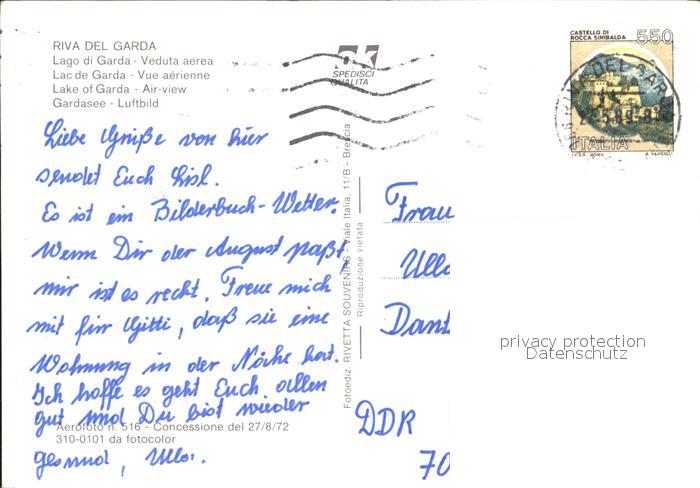 RIVA DEL GARDA
Lago di Garda - Veduta aerea
Lac de Garda - Vue aérienne
Lake of Garda - Air-view
Gardasee - Luftbild
SPEDISCI
QUALITÀ
CASTELLO DI
ROCCA SINIBALDA
550
ITALIA
I.P.Z.S. ROMA
Liebe Grüße von hier
sendet Euch Lisl.
Es ist ein Bilderbuch-Wetter.
Wenn Dir der August paßt,
mir ist es recht. Freue mich
mit für Gitti, daß sie eine
Wohnung in der Nähe hat.
Ich hoffe es geht Euch allen
gut und Du bist wieder
gesund, Ulla.
Aerofoto n. 516 - Concessione del 27/8/72
310-0101 da fotocolor
Fotoediz. RIVETTA SOUVENIRS - Viale Italia, 11/B - Brescia
Riproduzione vietata
Frau
Ulla
DDR
70
privacy protection
Datenschutz